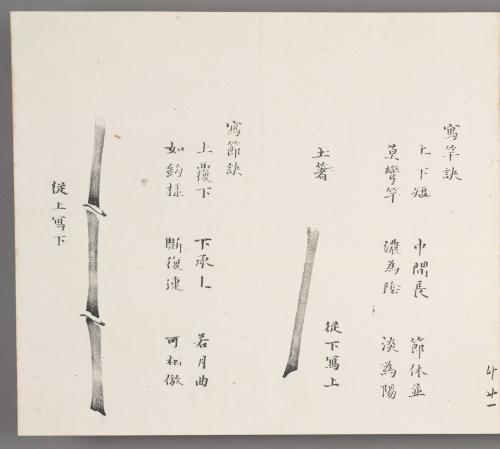 廿一
寫竿訣
上下短 中間長 節休並
莫彎竿 濃為陰 淡為陽
從下寫上
土著
寫節訣
上覆下 下承上 若月曲
如鈎樣 斷復連 可倣
從上寫下